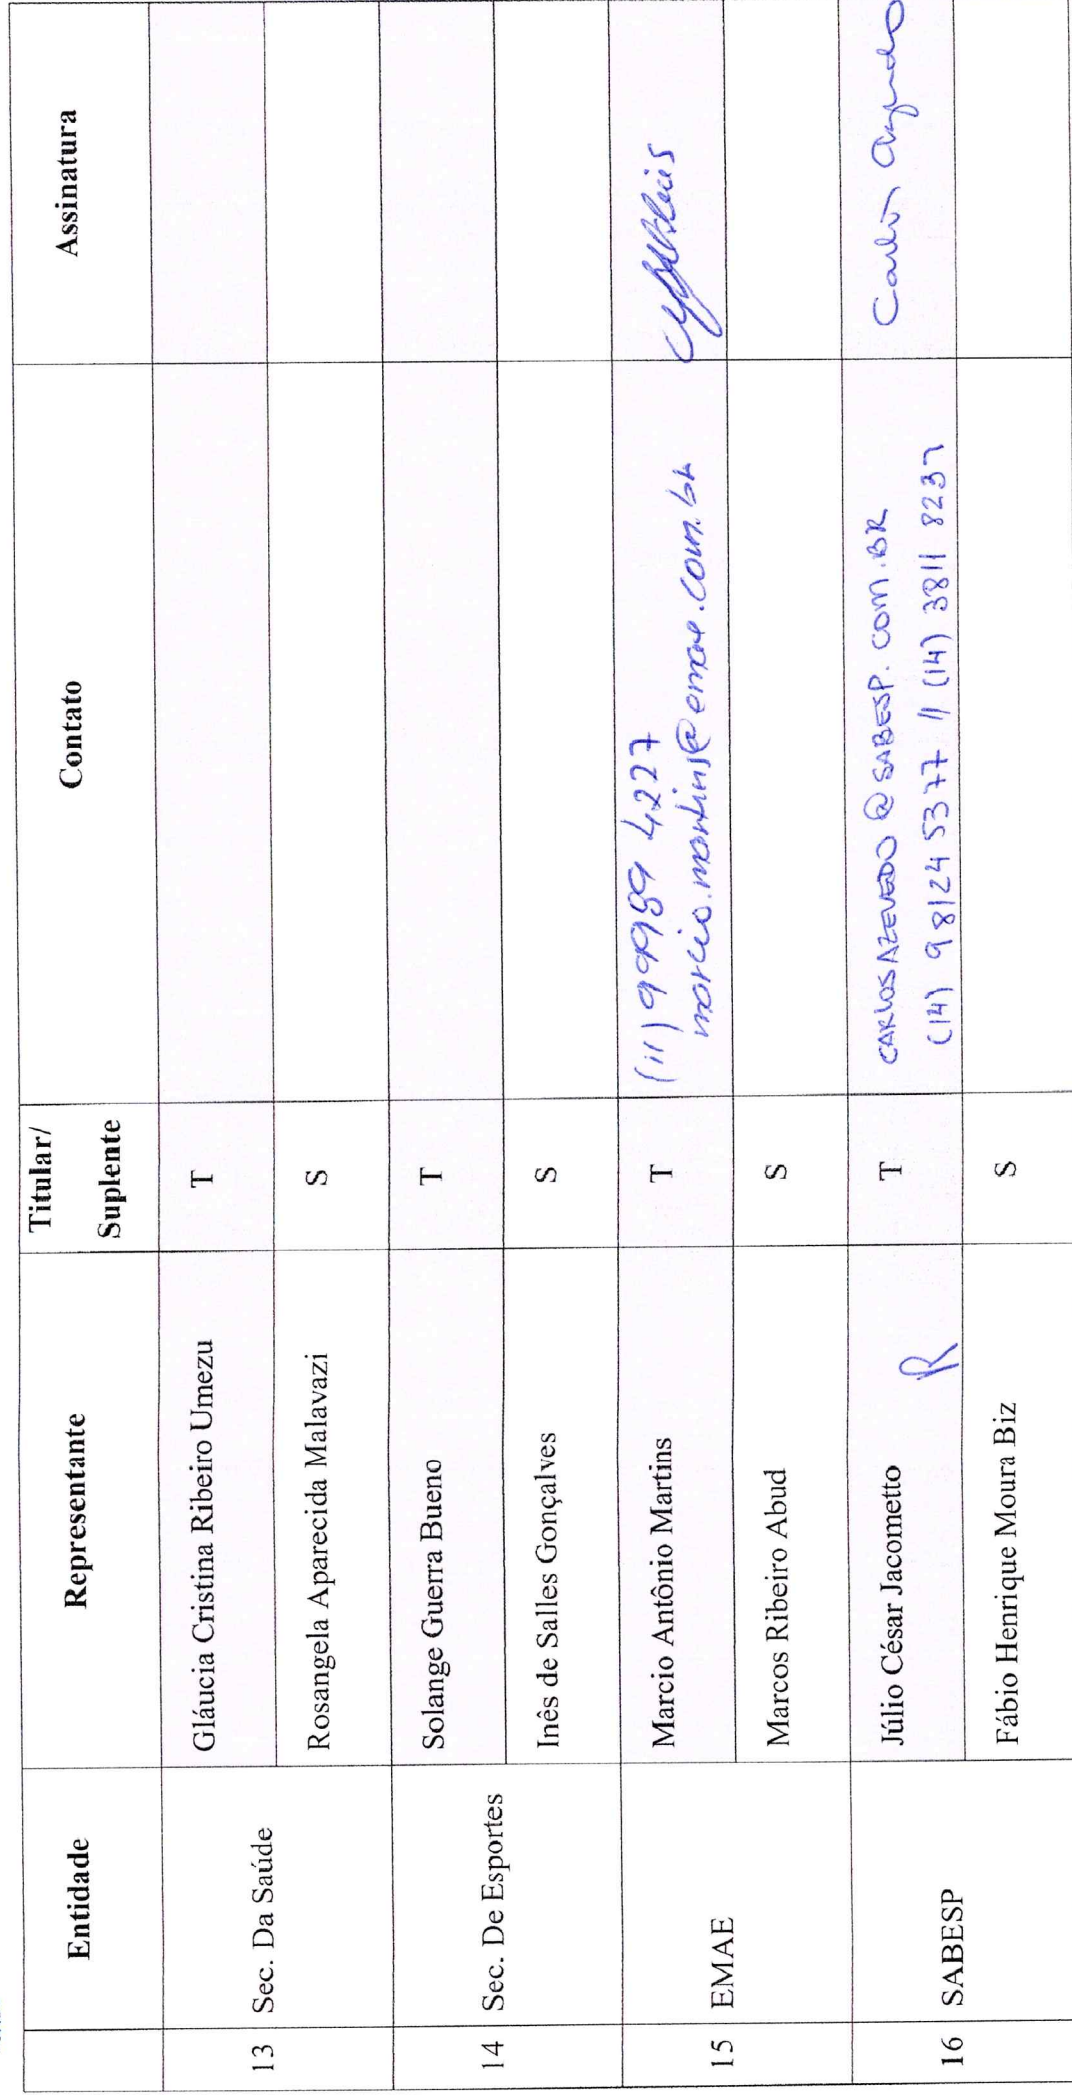 Entidade Representante Titular/ Suplente Contato Assinatura
13 Sec. Da Saúde Gláucia Cristina Ribeiro Umezu T
Rosangela Aparecida Malavazi S
14 Sec. De Esportes Solange Guerra Bueno T
Inês de Salles Gonçalves S
15 EMAE Marcio Antônio Martins T (11) 99989 4227
marcio.martins@emae.com.br
Marcos Ribeiro Abud S
16 SABESP Júlio César Jacometto R T CARLOSAZEVEDO@SABESP.COM.BR Carlos Azevedo
(14) 98124 5377 // (14) 3811 8237
Fábio Henrique Moura Biz S